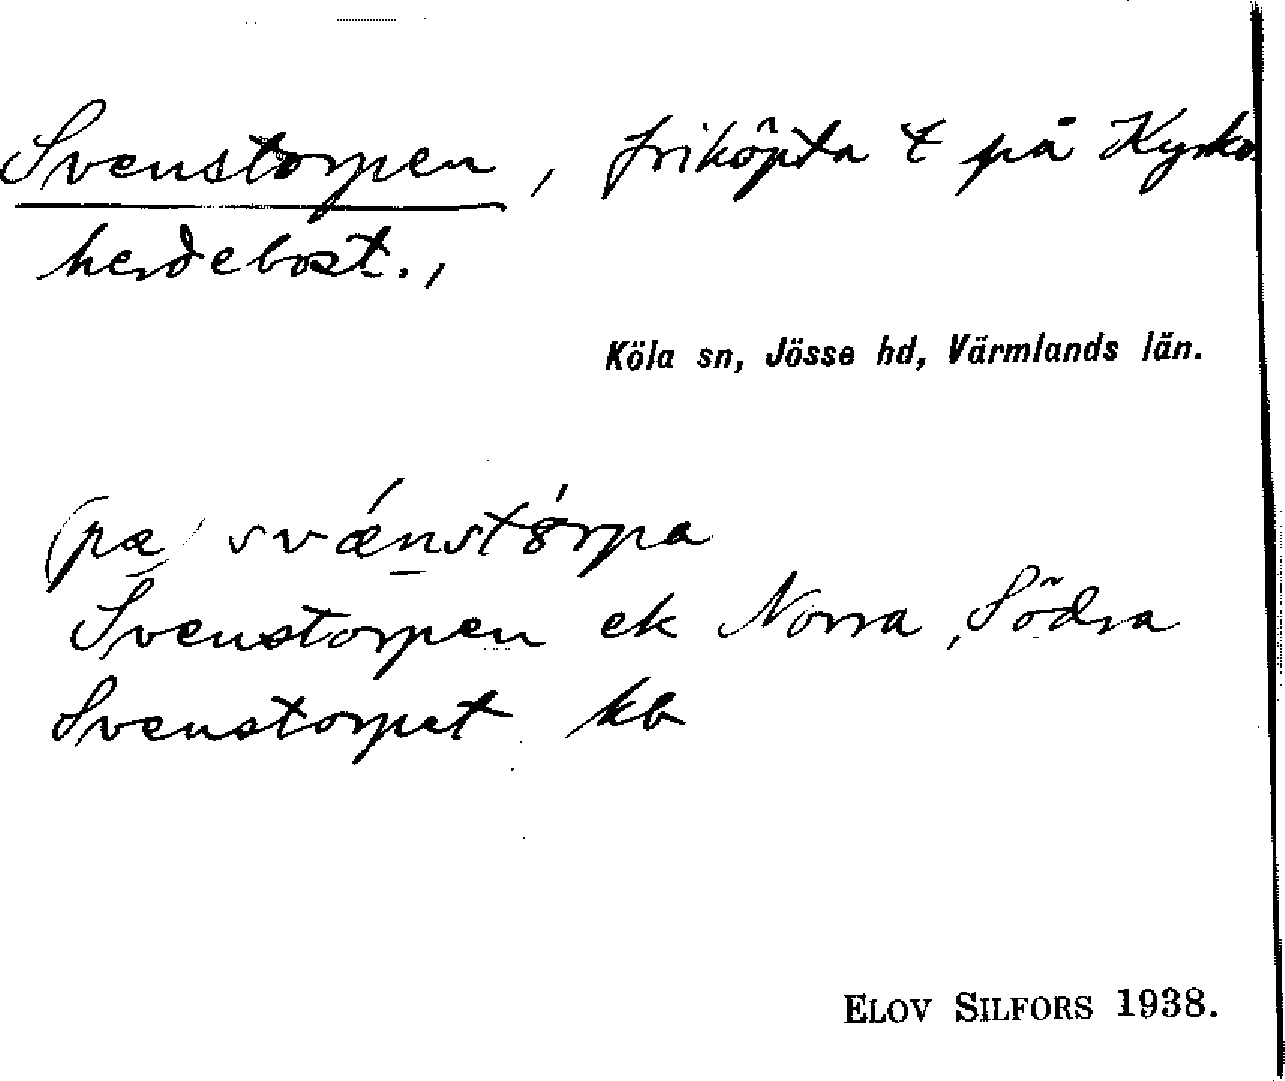 Svenstorpen, friköpta t på Kyrko
herdebost.,
Köla sn, Jösse hd, Värmlands län.
(pæ) svǽnstórpa
Svenstorpen ek Norra, Södra
Svenstorpet kb
ELOV SILFORS 1938.